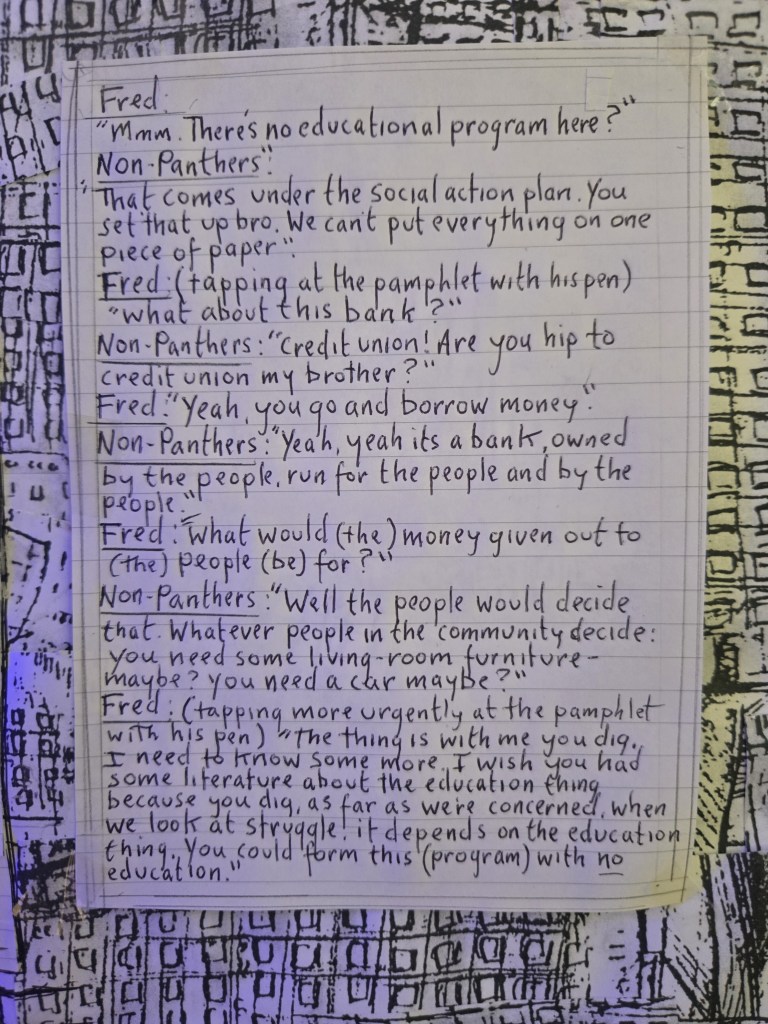 Fred:
"Mmm. There's no educational program here?"
Non-Panthers":
"That comes under the social action plan. You
set that up bro. We can't put everything on one
piece of paper".
Fred: (tapping at the pamphlet with his pen)
"what about this bank?"
Non-Panthers: "Credit union! Are you hip to
credit union my brother?"
Fred: "Yeah, you go and borrow money".
Non-Panthers: "Yeah, yeah its a bank, owned
by the people, run for the people and by the
people."
Fred: "What would (the) money given out to
(the) people (be) for?"
Non-Panthers: "Well the people would decide
that. Whatever people in the community decide:
you need some living-room furniture-
maybe? You need a car maybe?"
Fred: (tapping more urgently at the pamphlet
with his pen) "The thing is with me you dig.
I need to know some more. I wish you had
some literature about the education thing
because you dig, as far as we're concerned, when
we look at struggle! it depends on the education
thing. You could form this (program) with no
education."